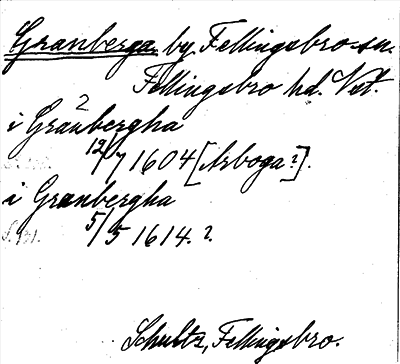 Granberga by Fellingsbro sn.
Fellingsbro hd. Vstl.
i Gra²nbergha
12/7 1604 [Arboga?].
i Granbergha
5/5 1614. ?.
Schultz, Fellingsbro.